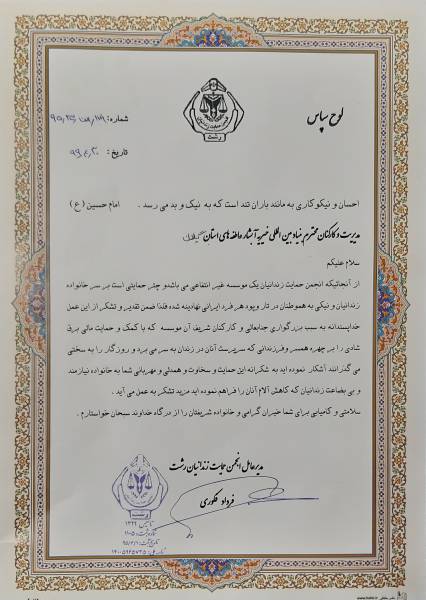 لوح سپاس
شماره:
تاریخ:
رشت
احسان و نیکوکاری به مانند باران تند است که به نیک و بد می رسد . امام حسین (ع)
مدیریت و کارکنان محترم بنیاد بین المللی خیریه آبشار عاطفه های استان گیلان
سلام علیکم
از آنجائیکه انجمن حمایت زندانیان یک موسسه غیر انتفاعی می باشد و چتر حمایتی است بر سر خانواده
زندانیان و نیکی به هموطنان در تار و پود هر فرد ایرانی نهادینه شده فلذا ضمن تقدیر و تشکر از این عمل
خداپسندانه به سبب بزرگواری جنابعالی و کارکنان شریف آن موسسه که با کمک و حمایت مالی برق
شادی را بر چهره همسر و فرزندانی که سرپرست آنان در زندان به سر می برد و روزگار را به سختی
می گذرانند آشکار نموده اید به شکرانه این حمایت و سخاوت و همدلی و مهربانی شما به خانواده نیازمند
و بی بضاعت زندانیان که کاهش آلام آنان را فراهم نموده اید مزید تشکر به عمل می آید .
سلامتی و کامیابی برای شما خیران گرامی و خانواده شریفتان را از درگاه خداوند سبحان خواستارم .
مدیرعامل انجمن حمایت زندانیان رشت
فرداد فکوری
رشت